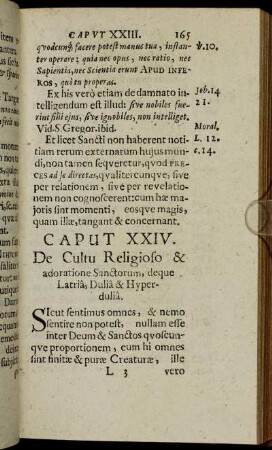 CAPVT XXIII. 165
quodcunq; facere potest manus tua, instan- ℣.10.
ter operare; quia nec opus, nec ratio, nec
Sapientia, nec Scientia erunt APUD INFE-
ROS, quò tu properas.
Ex his verò etiam de damnato in- Job.14
telligendum est illud: sive nobiles fue- 21.
rint filii ejus, sive ignobiles, non intelliget.
Vid. S. Gregor. ibid. Moral.
Et licet Sancti non haberent noti- L. 12.
tiam rerum externarum hujus mun- c.14.
di, non tamen seqveretur, qvod PRE-
CES ad se directas, qvalitercunqve, sive
per relationem, sive per revelatio-
nem non cognoscerent: cum hæ ma-
joris sint momenti, eosqve magis,
quam illæ, tangant & concernant.
CAPUT XXIV.
De Cultu Religioso &
adoratione Sanctorum, deque
Latriâ, Duliâ & Hyper-
duliâ.
Sicut sentimus omnes, & nemo
sentire non potest, nullam esse
inter Deum & Sanctos qvoscun-
qve proportionem, cum hi omnes
sint finitæ & puræ Creaturæ, ille
L 3 vero